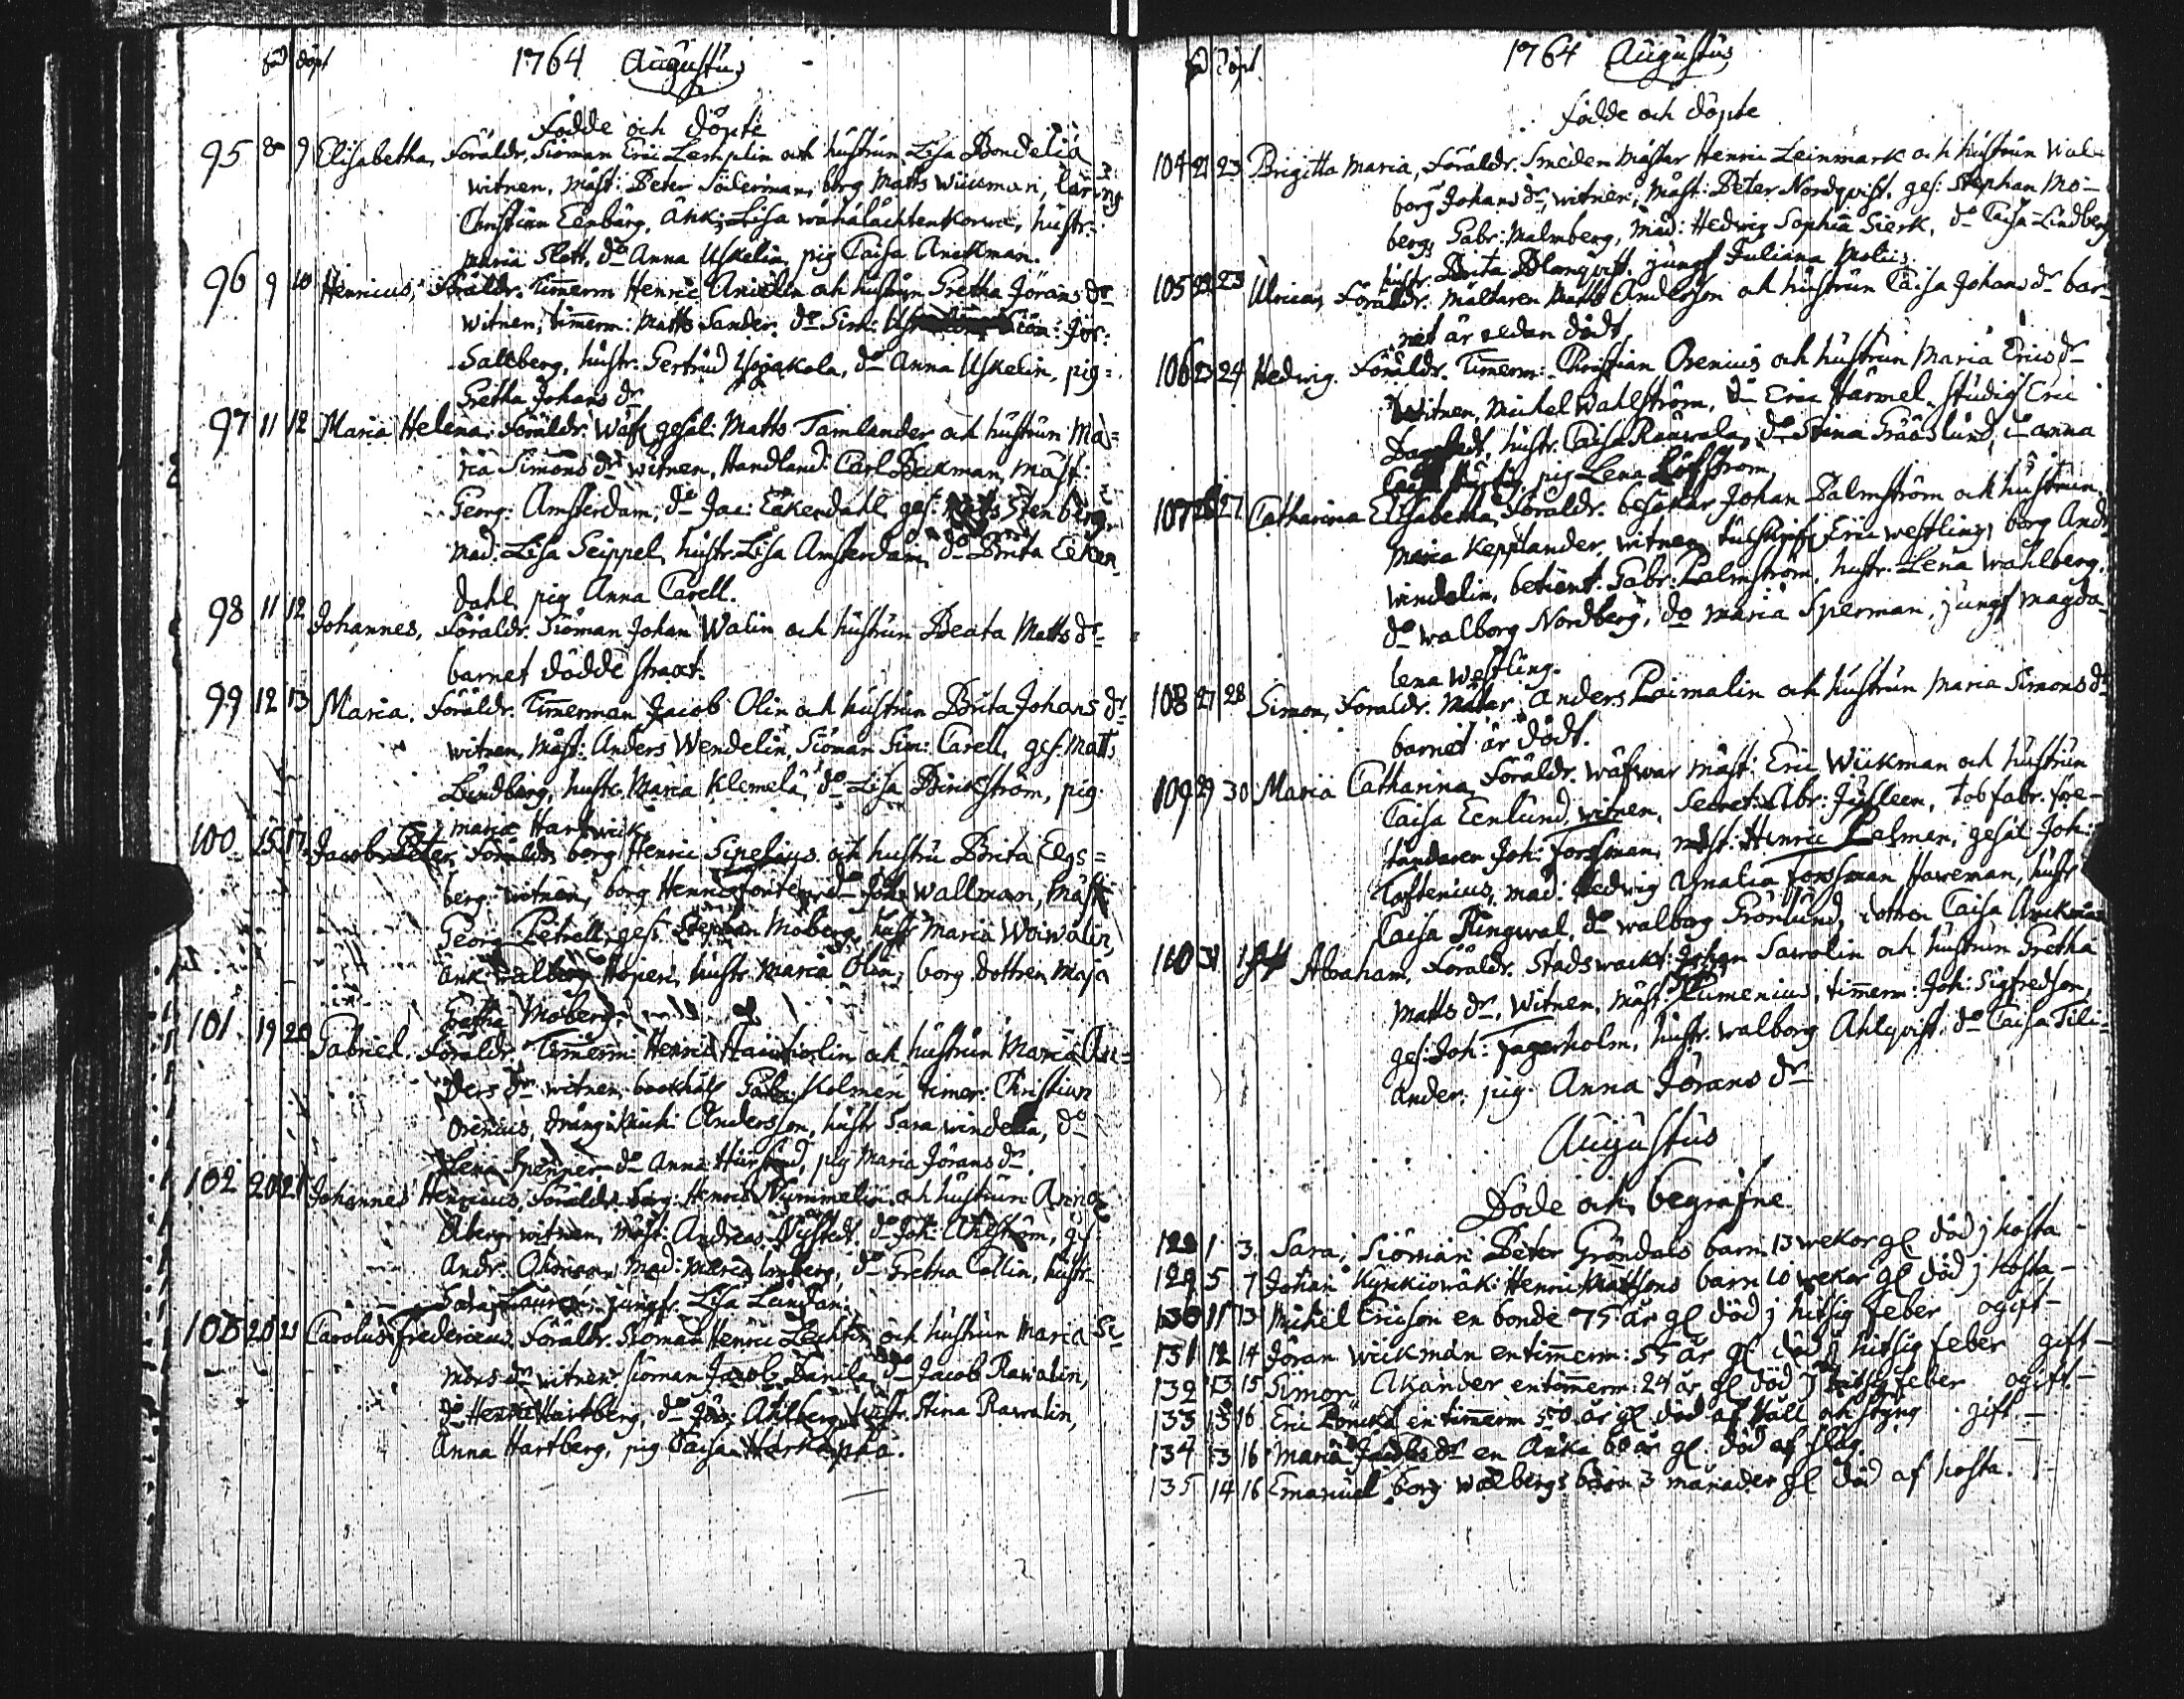 föd döpt 1764 Augustus
Födde och döpte
95 8 9 Elisabetha, Föräldr. Siöman Eric Lemplin och hustrun Lisa Bondelia
witnen, mäst: Peter Söderman, borg Matts Wikman, lärng
Christian Eenbärg, änk: Lisa hustr:
Maria Slott, do Anna Uskelin, pig Caisa Anckman.
96 9 10 Henricus, Föräldr. Timmerm Henric Anielin och hustrun Gretha Jörans dr
witnen, timmerm: Matts Sander, do Sim: Jör:
Sallberg, hustr. Gertrud Isopakola, do Anna Uskelin, pig:
Gretha Johans dr
97 11 12 Maria Helena. Föräldr. Wäf gesäl: Matts Tamlander och hustrun Ma=
ria Simons dr witnen, Handland: Carl Beckman, mäst:
Georg: Amsterdam, do Jac: Eäkendahl, ges: Stenberg,
mad: Lisa Seippel, hustr. Lisa Amsterdam, do Brita Eeken
dahl, pig Anna Carell.
98 11 12 Johannes, Föräldr. Siöman Johan Walin och hustrun Beata Matts dr
barnet dödde straxt.
99 12 13 Maria. Föräldr. Timmerman Jacob Olin och hustrun Brita Johans dr
witnen, mäst: Anders Wendelin, Siöman Sim: Carell, ges: Matts
Lundberg, hustr. Maria Klemelä, do Lisa Brinkström, pig
maria Hartwick
100 15 17 Jacob Peter, Föräldr. borg Henric Sipelius och hustru Brita Elgs=
berg. witnen, borg Henric do Joh: Wallman, mäst
Georg Petrell, ges. Stephan Moberg, hustr Maria Woiwalin,
änk Walborg Höpen, hustr. Maria Olin, borg dottren Maja
Gretha Moberg
101 19 20 Gabriel. Föräldr. Timmerm: Henric och hustrun Maria An=
ders dr witnen, bookhåll Gabr: Holmen timer: Christian
Orenius, dräng Mich: Andersson, hustr Sara do
Lena Spenner do Anna pig Maria Jörans dr.
102 20 21 Johannes Henricus, Föräldr. borg: Henric Nummelin och hustrun Anna
Åberg witnen, mäst: Andreas Nystedt, do Joh: Ahlström, ges:
Andr. mad: Maria do Gretha Collin, hustr
Sara Lauren, jungfr. Lisa Lundan.
103 20 21 Carolus Fredericus Föräldr. Siöman Henric och hustrun Maria Si=
mons dr witnen siöman Jacob Danila, do Jacob Rawalin,
do Henric Hartberg, do Jör: Ahlberg, hustr. Stina Rawalin,
Anna Hartberg, pig Caisa
föd döpt 1764 Augustus
Födde och döpte
104 21 23 Brigitta Maria, Föräldr. Smeden mästar Henric Leinmark och hustrun Wal-
borg Johans dr, witnen, mäst: Peter Nordqvist, ges: Stephan Mo-
berg, Gabr: Malmberg, mad: Hedwig Sophia Sierk, do Caisa Lindberg
hustr. Brita Blanqvist, jungf Juliana Molin.
105 22 23 Ulrica, Föräldr. Mältaren Matts Anderson och hustrun Caisa Johans dr bar-
net är redan dödt
106 23 24 Hedwig. Föräldr. Timmerm: Christian Orenius och hustrun Maria Erics dr
Witnen, Michel Wahlström, do Eric Harmel, studios Eric
hustr. Caisa Rauwala, do Stina Gråäslund, do anna
pig Lena Löfström
107 26 27 Catharina Elisabetha, Föräldr. besökar Johan Palmström och hustrun
Maria Kepplander, witnen, Eric westling, borg And:
Windelin, betient: Gabr: Palmström, hustr. Lena Wahlberg,
do walborg Nordberg, do maria Sperman, jungf magda-
lena Westling.
108 27 28 Simon, Föräldr. Mäter Anders Laimalin och hustrun Maria Simons dr
barnet är dödt.
109 29 30 Maria Catharina, Föräldr. wäfwar mäst: Eric Wiikman och hustrun
Caisa Eenlund, witnen, Secret: Abr: tob fabr. före-
ståndaren Joh: Forssman, mäst: Henric Palmen, gesäl Joh:
Toftenius, mad: Hedwig Amalia Forssman Hareman, hustr
Caisa Ringwal, do walborg Grönlund, dottren Caisa Anckman
110 31 1 Abraham. Föräldr. Stadswackt: Johan Sawolin och hustrun Gretha
Matts dr. Witnen, Mäst: Rumenius, timmerm: Joh: Sigfredson,
ges: Joh: Fagerholm, hustr. walborg Ahlqvist, do Caisa Tili=
ander, pig. Anna Jörans dr
Augustus
Döde och begrafne
128 1 3 Sara, Siöman Peter Gröndals barn 13 wekor gl död j hosta
129 5 7 Johan Henric Mattsons barn 10 wekor gl död j hosta-
130 11 13 Michel Ericson en bonde 75 år gl död j hitsig feber ogift-
131 12 14 Jöran Wiikman en timmerm: 55 år gl död j hitsig feber gift-
132 13 15 Simon Akander en timmerm: 24 år gl död j hitsig feber ogift-
133 13 16 Eric en timmerm 50 år gl död af håll och styng gift-
134 13 16 Maria Jacobs dr en änka 60 år gl. död af slag.
135 14 16 Emanuel borg walbergs barn 3 månader gl död af hosta.